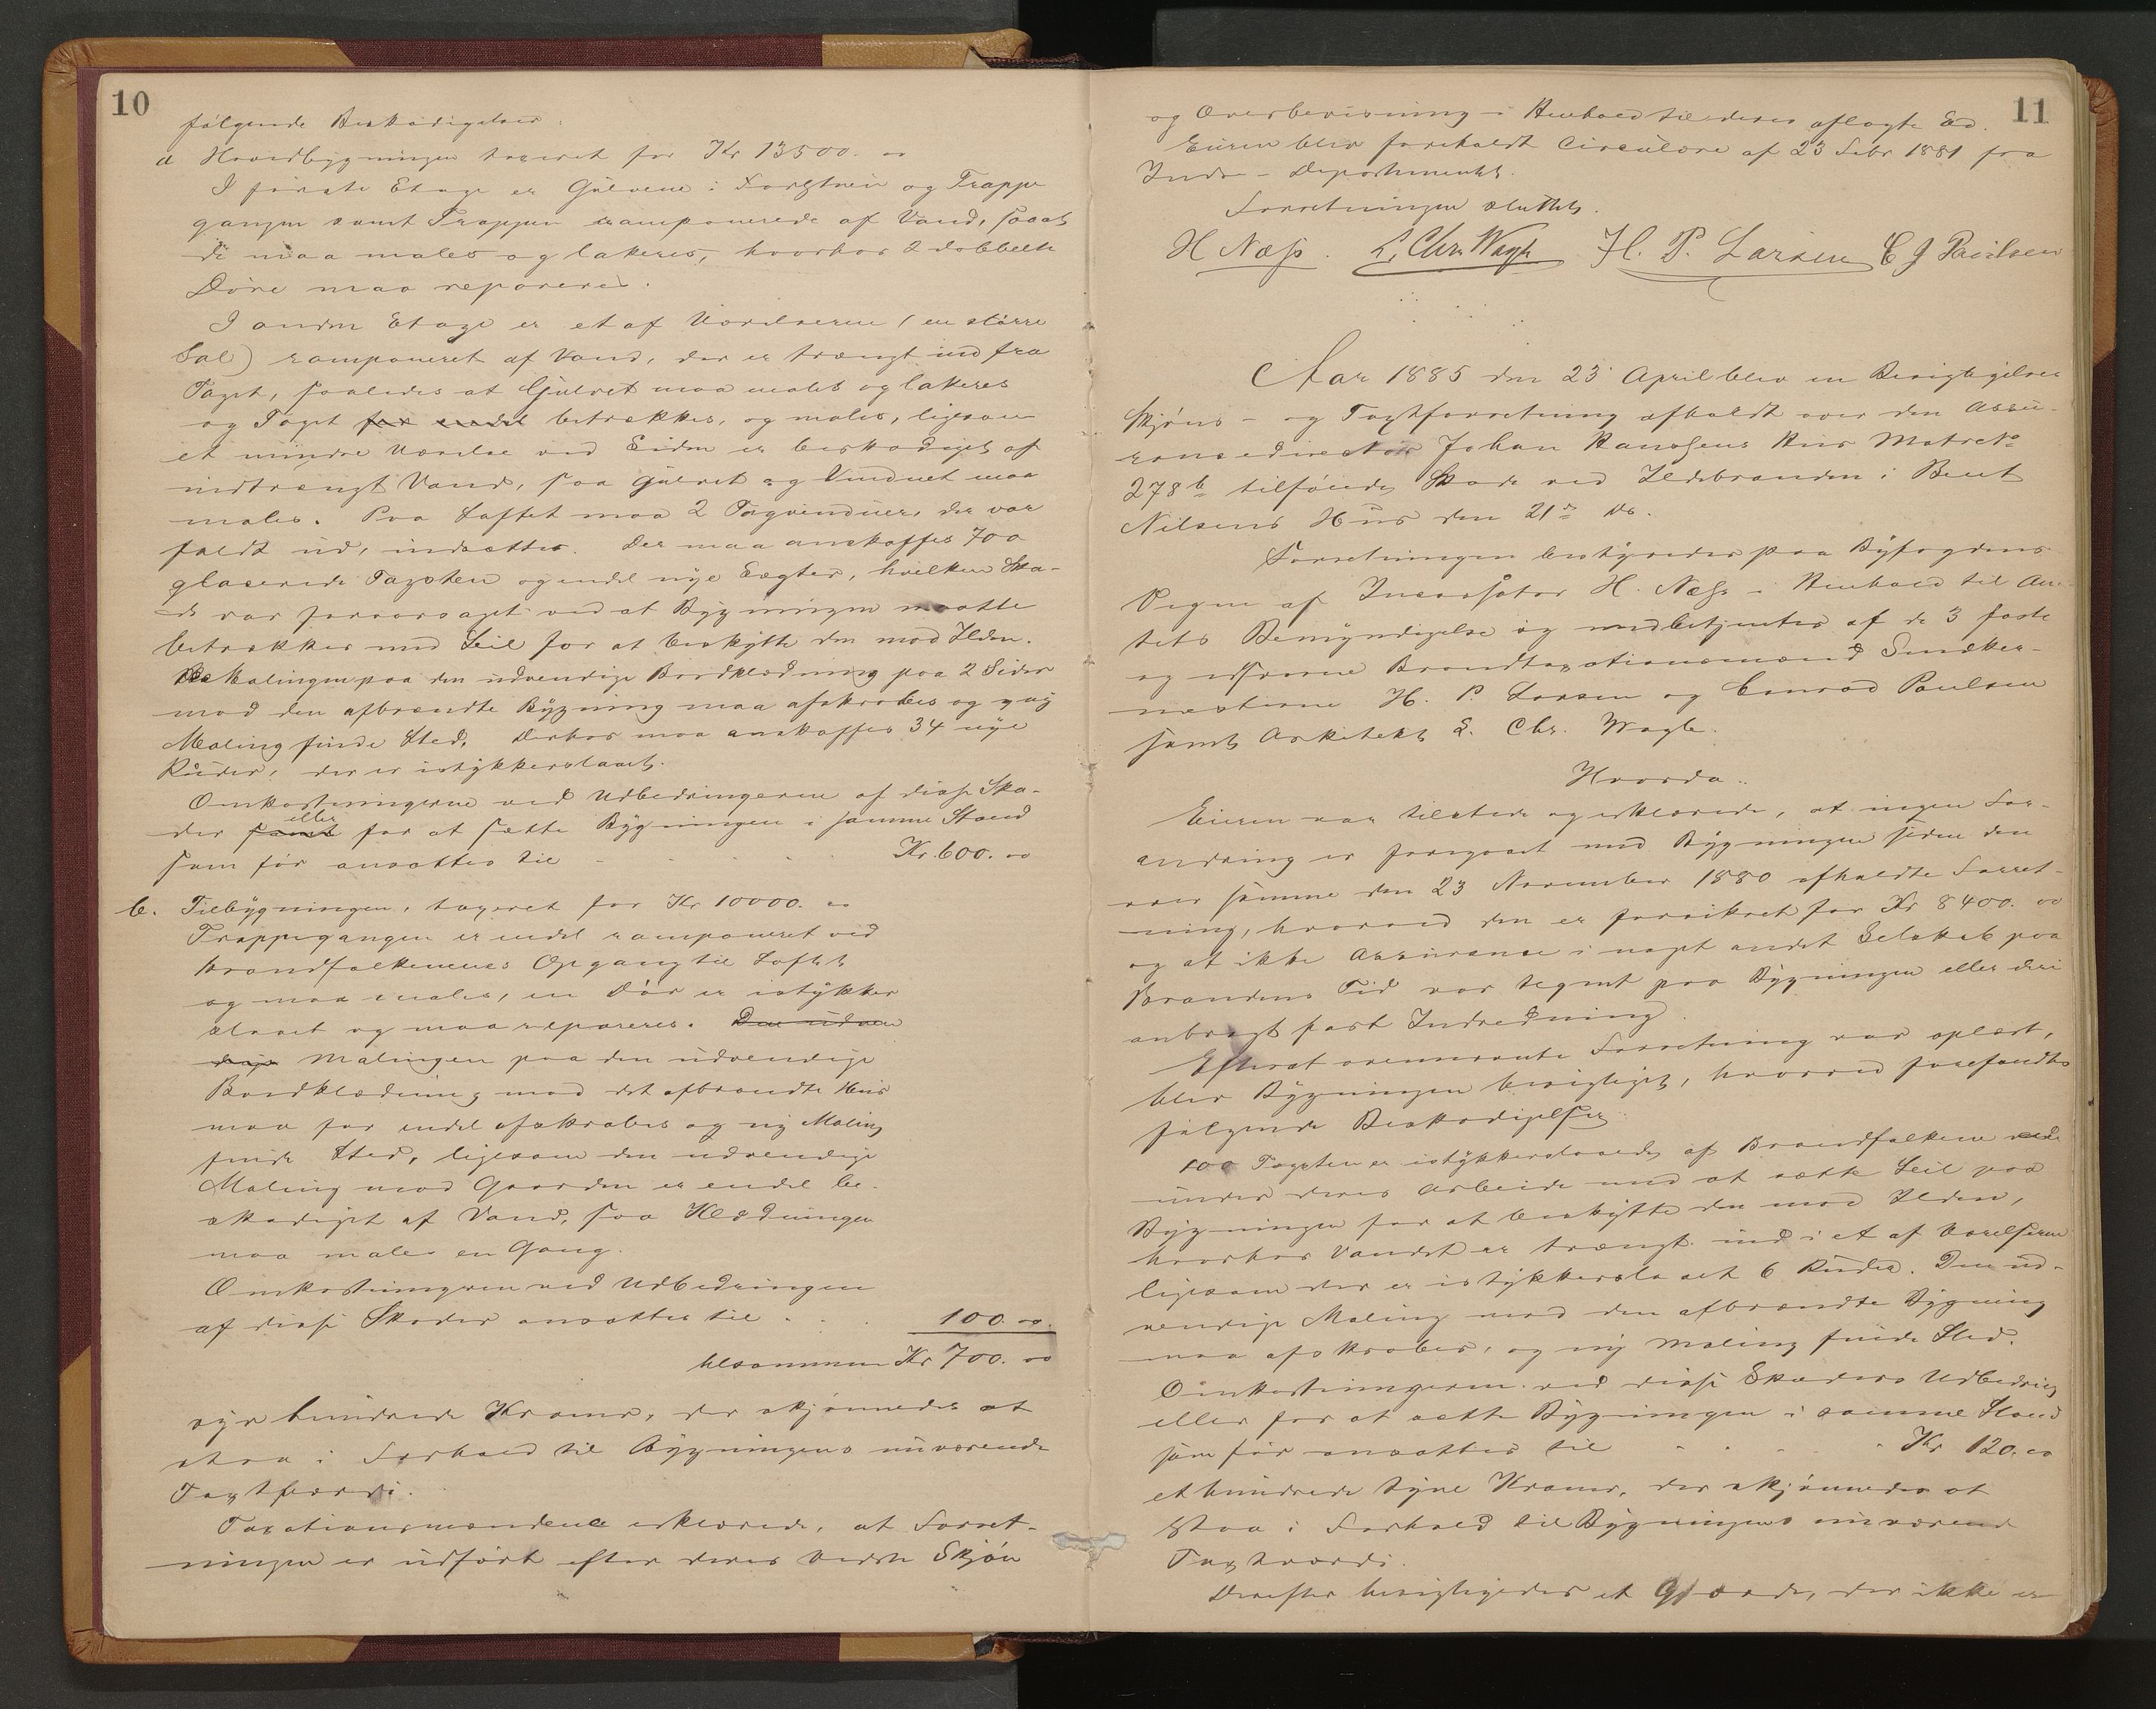 10
følgende Beskadigelser:
a Hovedbygningen taxeret for Kr 13500. oo
I første Etage er Gulvene i Forstuen og Trappe
gangen samt Trappen ramponerede af Vand, saaat
de maa males og lakeres, hvorhos 2 dobbelte
Døre maa repareres.
I anden Etage er et af Værelserne (en større
Sal) ramponeret af Vand, der er trængt ind fra
Taget, saaledes at Gulvet maa males og lakeres
og Taget for endel betrækkes, og males, ligesom
et mindre Værelse ved Siden er beskadiget af
indtrængt Vand, saa Gulvet og Vinduet maa
males. Paa Loftet maa 2 Tagvinduer, der var
faldt ud, indsættes. Der maa anskaffes 700
glaserede Tagsten og endel nye Lægter, hvilken Ska-
de var foraarsaget ved at Bygningen maatte
betrækkes med Seil for at beskytte den mod Ilden.
Malingen paa den udvendige Bordklædning paa 2 Sider
mod den afbrændte Bygning maa afskrabes og ny
Maling finde Sted. Derhos maa anskaffes 34 nye
Ruder, der er istykkerslaaet.
Omkostningerne ved Udbedringerne af disse Ska-
eller
der samt for at sætte Bygningen i samme Stand
som før ansættes til Kr. 600. oo
b. Tilbygningen, taxeret for Kr 10000. oo
Trappegangen er endel ramponeret ved
Brandfolkenes Opgang til Loftet
og maa males, en Dør er istykker
slaaet og maa repareres. Den udven
dige Malingen paa den udvendige
Bordklædning mod det afbrændte Hus
maa for endel afskrabes og ny Maling
finde Sted, ligesom den udvendige
Maling mod Gaarden er endel be-
skadiget af Vand, saa Klædningen
maa males en Gang.
Omkostningerne ved Udbedringen
af disse Skader ansættes til 100. oo.
tilsammen Kr 700. oo
syv hundrede Kroner, der skjønnedes at
staa i Forhold til Bygningens nuværende
Taxtværdi.
Taxationsmændene erklærede, at Forret-
ningen er udført efter deres bedste Skjøn
11
og Overbevisning i Henhold til deres aflagte Ed.
Eieren blev foreholdt Circulære af 23 Febr 1881 fra
Indre-Departementet.
Forretningen sluttet.
H Næss. L. Chr. Wagle H. P. Larsen C J Paulsen
Aar 1885 den 23 April blev en Besigtigelses
Skjøns- og Taxtforretning afholdt over den Assu-
rancedirektør Johan Hanssens Hus Matr No
278b tilføiede Skade ved Ildebranden i Bent
Nilsens Hus den 21de ds.
Forretningen bestyredes paa Byfogdens
Vegne af Incassator H. Næss i Henhold til
tets Bemyndigelse og medbetjentes af de 3 faste
og edsvorne Brandtaxationsmænd Snedker-
mesterne H. P. Larsen og Conrad Paulsen
samt Arkitekt L. Chr. Wagle.
Hvorda:
Eieren var tilstede og erklærede, at ingen For-
andring er foregaaet med Bygningen siden den
over samme den 23 November 1880 afholdte Forret-
ning, hvorved den er forsikret for Kr 8400. oo
og at ikke Assurance i noget andet Selskab paa
Brandens Tid var tegnet paa Bygningen eller deri
anbragt fast Indredning.
Efterat ovennævnte Forretning var oplæst,
blev Bygningen besigtiget, hvorved forefandtes
følgende Beskadigelser:
100 Tagsten er istykkerslaaede af Brandfolkene
under deres Arbeide med at sætte Seil paa
Bygningen for at beskytte den mod Ilden,
hvorhos Vandet er trængt ind i et af Værelserne
ligesom der er istykkerslaaet 6 Ruder. Den ud-
vendige Maling mod den afbrændte Bygning
maa afskrabes, og ny Maling finde Sted.
Omkostningerne ved disse Skaders Udbedring
eller for at sætte Bygningen i samme Stand
som før ansættes til Kr 120. oo
et hundrede tyve Kroner, der skjønnedes at
staa i Forhold til Bygningens nuværende
Taxtværdi.
Derefter besigtigedes et Gjærde, der ikke er